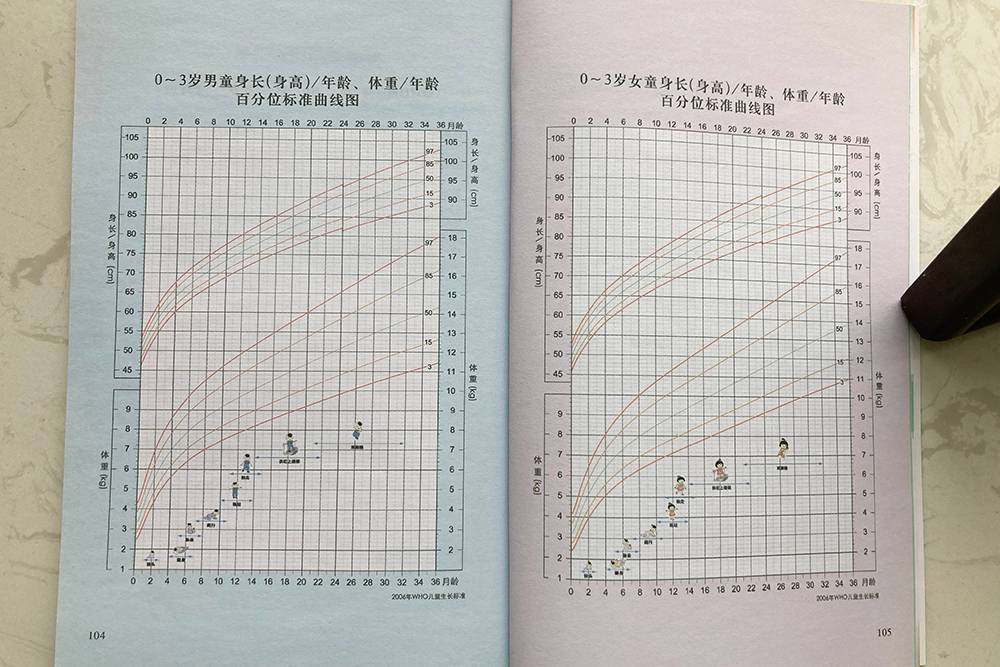 0～3岁男童身长(身高)/年龄、体重/年龄
百分位标准曲线图
0 2 4 6 8 10 12 14 16 18 20 22 24 26 28 30 32 34 36 月龄
105
100
95
90
85
80
75
70
65
60
55
50
45
身长/身高 (cm)
105
100
95
90
身长/身高 (cm)
97
85
50
15
3
97
85
50
15
3
18
17
16
15
14
13
12
11
10
9
8
7
6
5
4
3
2
体重 (kg)
9
8
7
6
5
4
3
2
1
体重 (kg)
0 2 4 6 8 10 12 14 16 18 20 22 24 26 28 30 32 34 36 月龄
2006年WHO儿童生长标准
104
0～3岁女童身长(身高)/年龄、体重/年龄
百分位标准曲线图
0 2 4 6 8 10 12 14 16 18 20 22 24 26 28 30 32 34 36 月龄
105
100
95
90
85
80
75
70
65
60
55
50
45
身长/身高 (cm)
105
100
95
90
身长/身高 (cm)
97
85
50
15
3
97
85
50
15
3
18
17
16
15
14
13
12
11
10
9
8
7
6
5
4
3
2
体重 (kg)
9
8
7
6
5
4
3
2
1
体重 (kg)
0 2 4 6 8 10 12 14 16 18 20 22 24 26 28 30 32 34 36 月龄
2006年WHO儿童生长标准
105